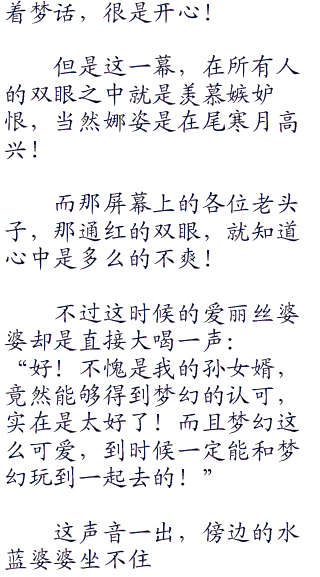 着梦话，很是开心！
但是这一幕，在所有人
的双眼之中就是羡慕嫉妒
恨，当然娜姿是在尾寒月高
兴！
而那屏幕上的各位老头
子，那通红的双眼，就知道
心中是多么的不爽！
不过这时候的爱丽丝婆
婆却是直接大喝一声：
“好！不愧是我的孙女婿，
竟然能够得到梦幻的认可，
实在是太好了！而且梦幻这
么可爱，到时候一定能和梦
幻玩到一起去的！”
这声音一出，傍边的水
蓝婆婆坐不住